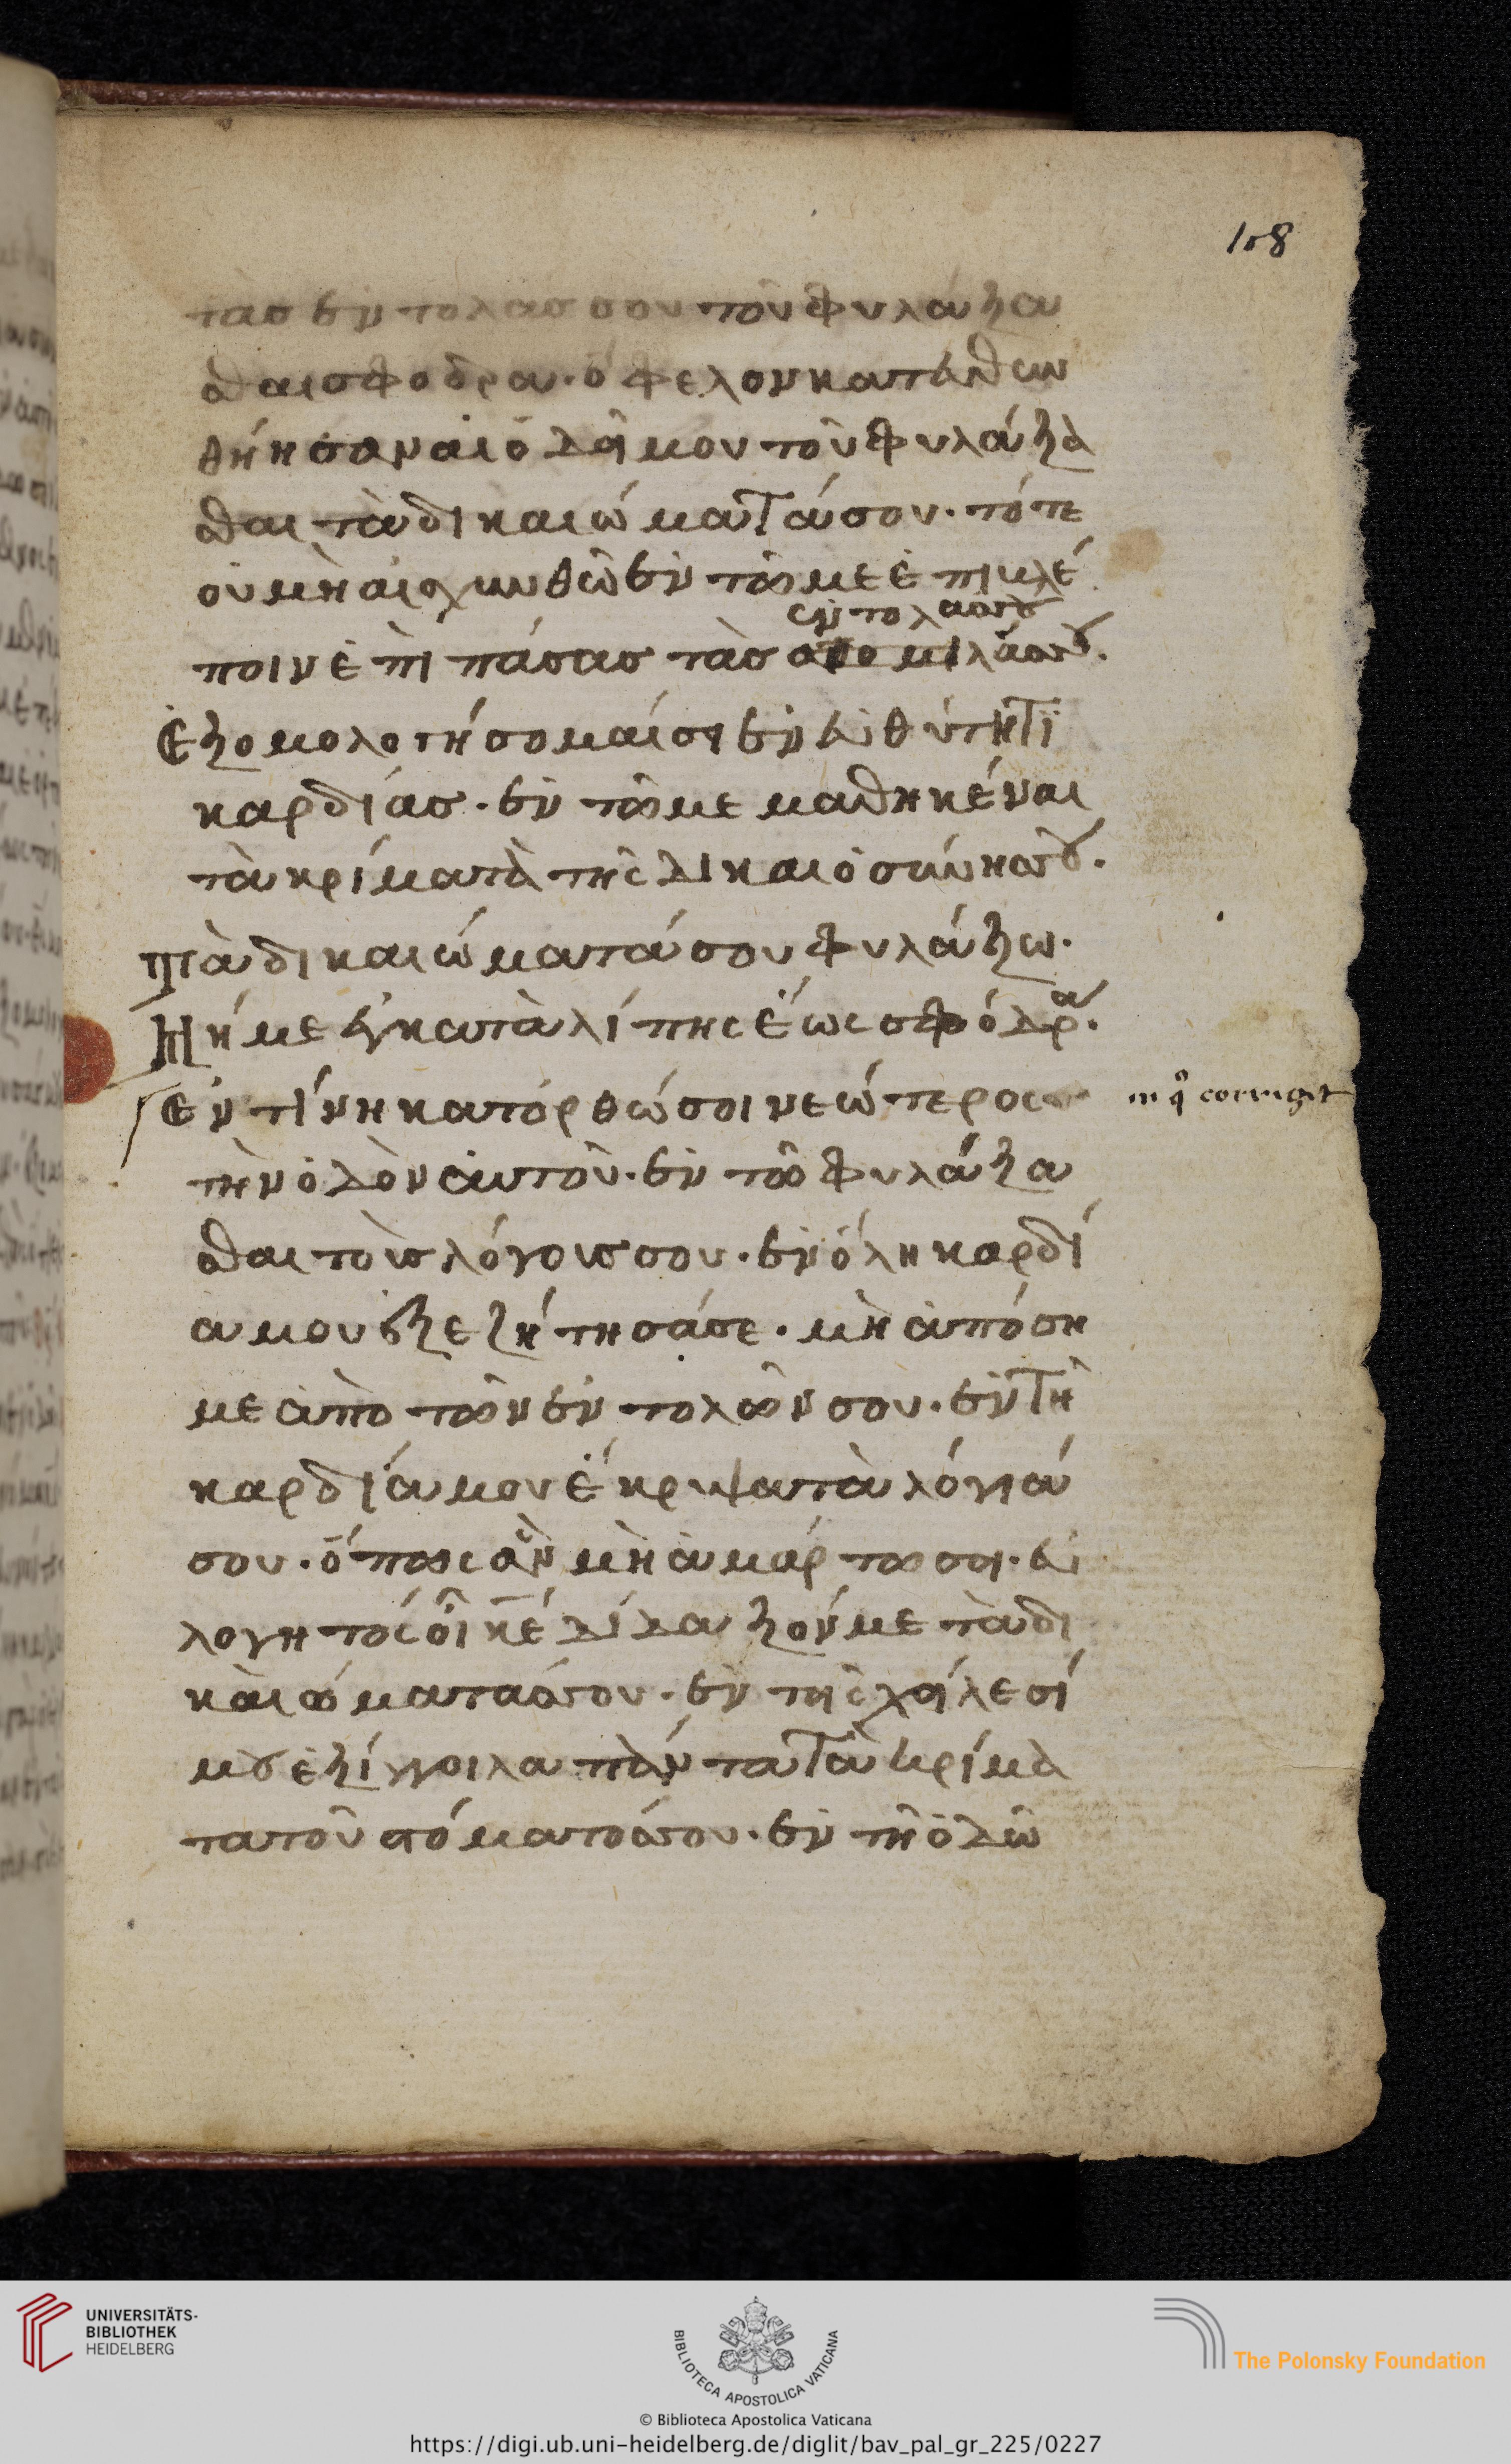 108
τὰσ ἐντολάσ σου τοῦ φυλάξα
σθαι σφόδρα· ὄφελον κατευθυν
θήησαν αἱ ὁδοί μου τοῦ φυλάξα
σθαι τὰ δικαιώματά σου· τότε
οὐ μὴ αἰσχυνθῶ ἐν τῶ με ἐπιβλέ
ἐντολάσ σου
πειν ἐπὶ πάσασ τὰσ
Ἐξομολογήσομαί σοι ἐν εὐθύτητι
καρδίασ· ἐν τῶ με μαθηκέναι
τὰ κρίματα τῆς δικαιοσύνησ σου·
Τὰ δικαιώματά σου φυλάξω·
Μή με ἐγκαταλίπης ἕως σφόδρα·
Ἐν τίνη κατορθώσοι νεώτεροσ in quo corrigit
τὴν ὁδὸν αὐτοῦ· ἐν τῶ φυλάξα
σθαι τοὺσ λόγουσ σου· ἐν ὅλη καρδί
α μου ἐξεζήτησά σε· μὴ ἀπόση
με ἀπὸ τῶν ἐντολῶν σου· ἐν τῆ
καρδία μου ἔκρυψα τὰ λόγιά
σου· ὅπως ἂν μὴ ἁμάρτω σοι· εὐ
λογητός εἶ κ̅ε̅ δίδαξόν με τὰ δι
καιώματά σου· ἐν τοῖς χείλεσί
μου ἐξίγγοιλα πάντα τὰ κρίμα
τα τοῦ στόματόσ σου· ἐν τῆ ὁδῶ
UNIVERSITÄTS-
BIBLIOTHEK
HEIDELBERG
BIBLIOTECA APOSTOLICA VATICANA
The Polonsky Foundation
© Biblioteca Apostolica Vaticana
https://digi.ub.uni-heidelberg.de/diglit/bav_pal_gr_225/0227